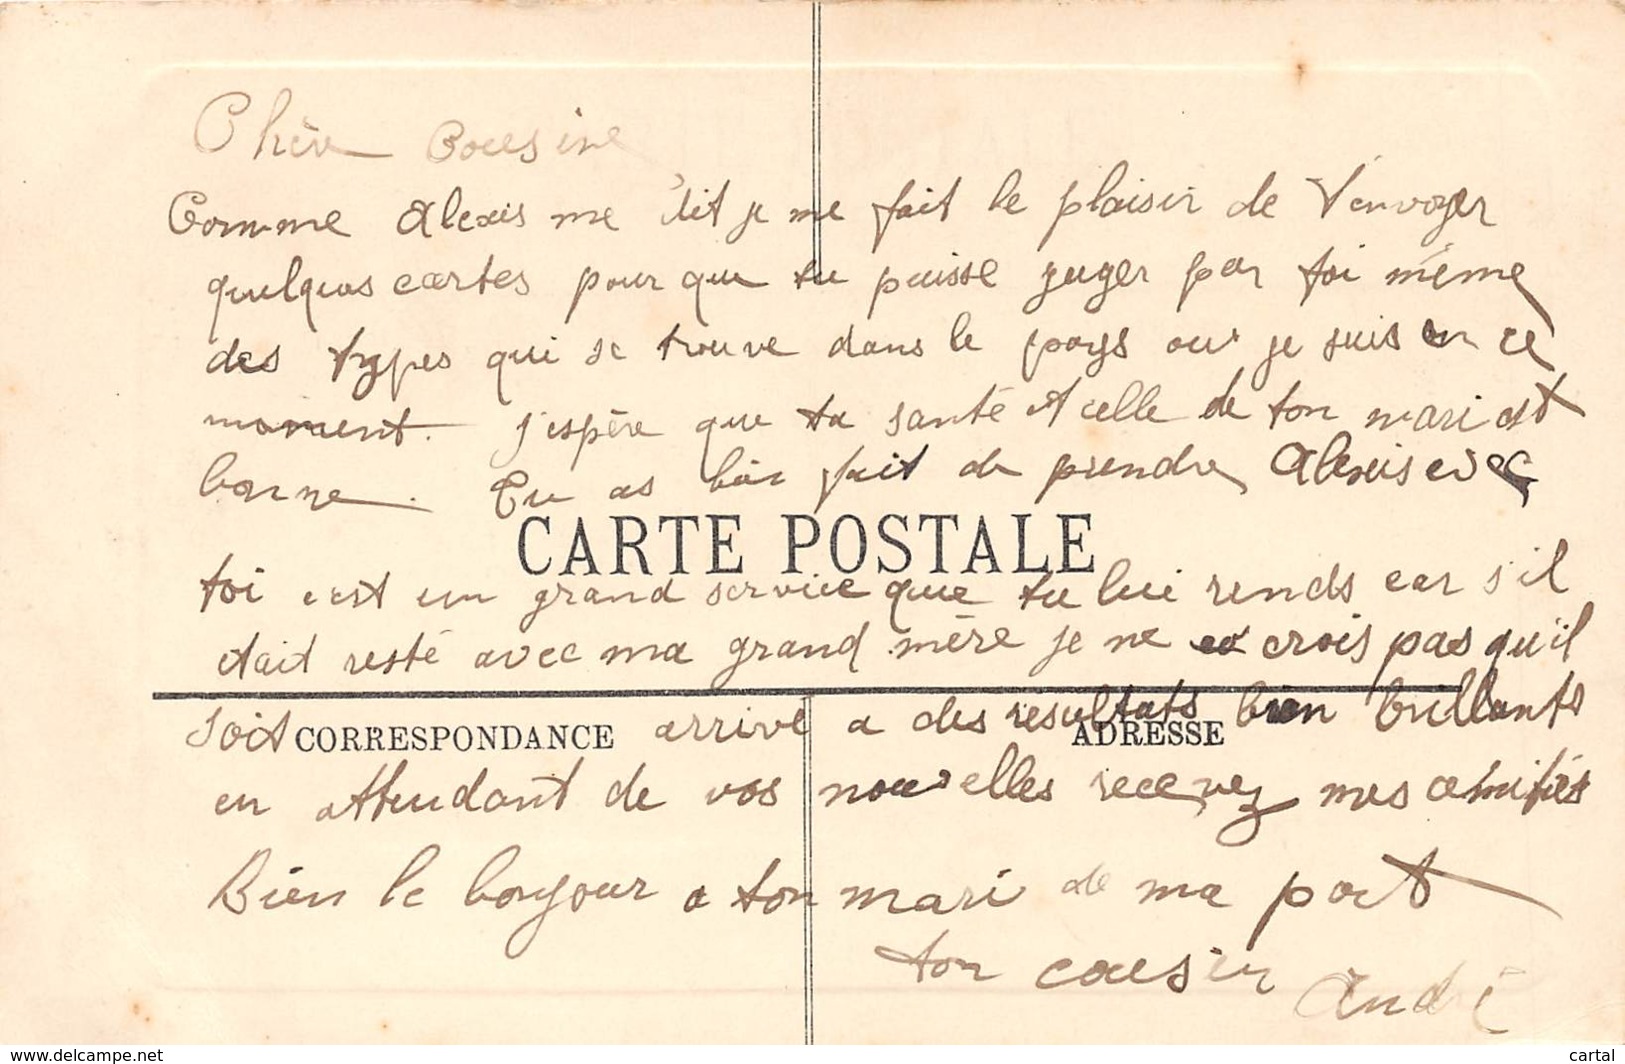 Chère Cousine
Comme Alexis me dit je me fait le plaisir de t'envoyer
quelques cartes pour que tu puisse juger par toi même
des types qui se trouve dans le pays ou je suis en ce
moment. j'espère que ta santé et celle de ton mari est
bonne. Tu as bien fait de prendre Alexis avec
CARTE POSTALE
toi c'est un grand service que tu lui rends car s'il
était resté avec ma grand mère je ne crois pas qu'il
soit arrivé a des resultats bien brillants
CORRESPONDANCE ADRESSE
en attendant de vos nouvelles recevez mes amitiés
Bien le bonjour a ton mari de ma part
ton cousin André
www.delcampe.net cartal